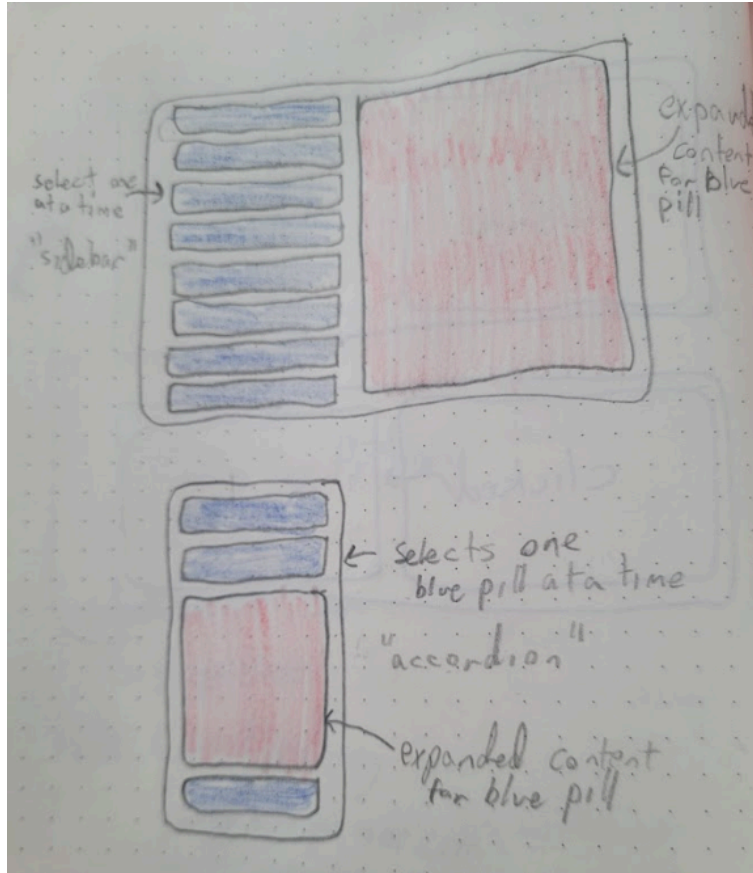 select one
at a time
"sidebar"
expand
content
for blue
pill
selects one
blue pill at a time
"accordion"
expanded content
for blue pill